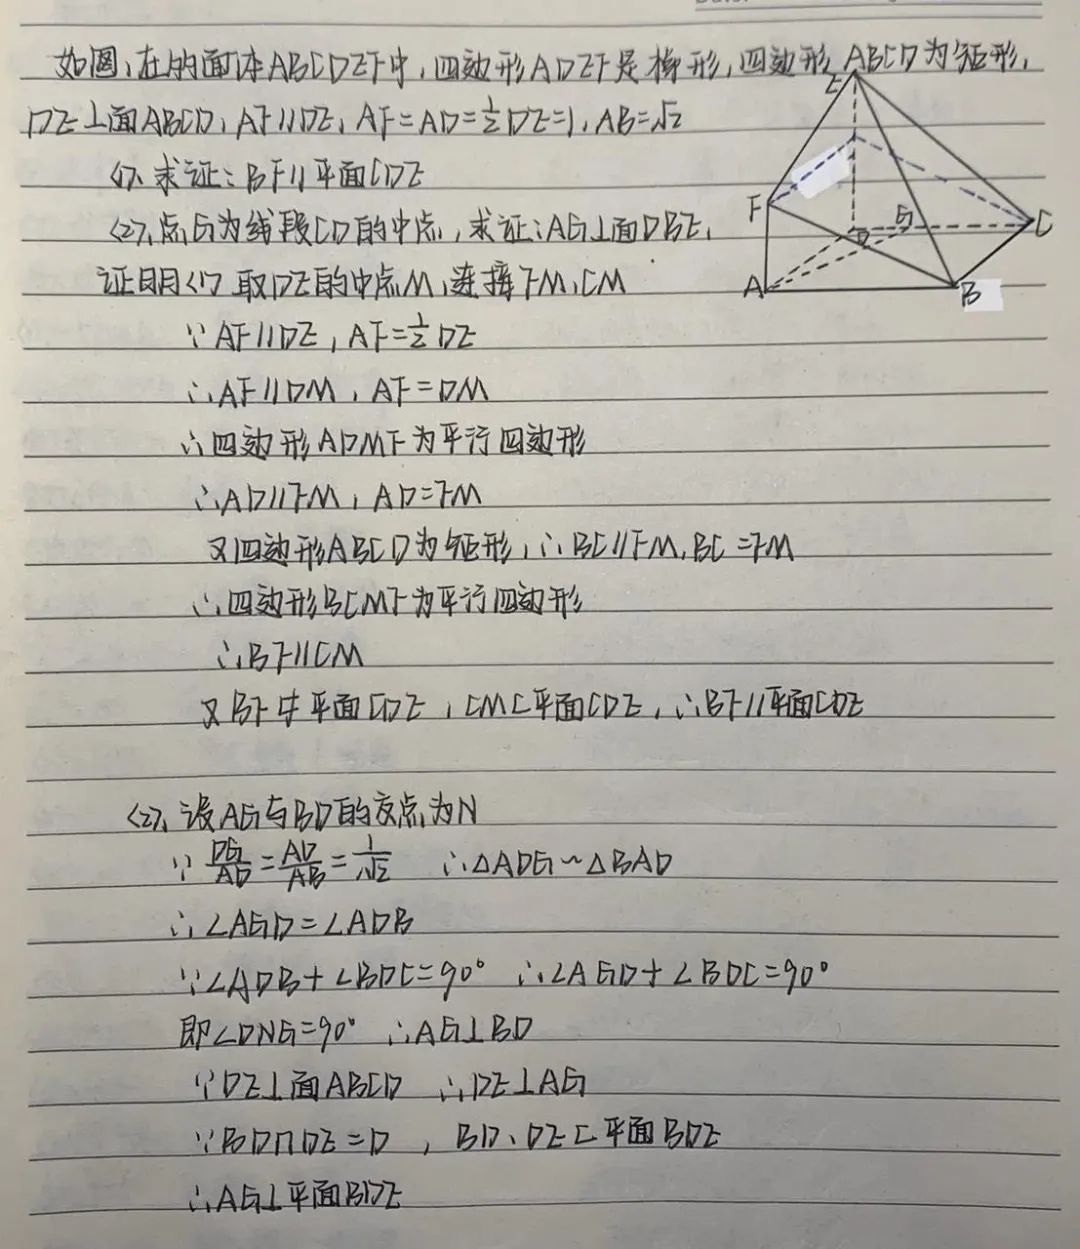 如图,在多面体ABCDEF中,四边形ADEF是梯形,四边形ABCD为矩形,
DE⊥面ABCD,AF∥DE,AF=AD=½DE=1,AB=√2
(1)、求证:BF∥平面CDE
(2)、点G为线段CD的中点,求证:AG⊥面DBE.
E
F
G
C
D
A
B
证明(1)取DE的中点M,连接FM,CM
∵AF∥DE,AF=½DE
∴AF∥DM,AF=DM
∴四边形ADMF为平行四边形
∴AD∥FM,AD=FM
又四边形ABCD为矩形,∴BC∥FM,BC=FM
∴四边形BCMF为平行四边形
∴BF∥CM
又BF⊄平面CDE,CM⊂平面CDE,∴BF∥平面CDE
(2)、设AG与BD的交点为N
∵DG/AD=AD/AB=1/√2 ∴△ADG∽△BAD
∴∠AGD=∠ADB
∵∠ADB+∠BDC=90° ∴∠AGD+∠BDC=90°
即∠DNG=90° ∴AG⊥BD
∵DE⊥面ABCD ∴DE⊥AG
∵BD∩DE=D,BD、DE⊂平面BDE
∴AG⊥平面BDE